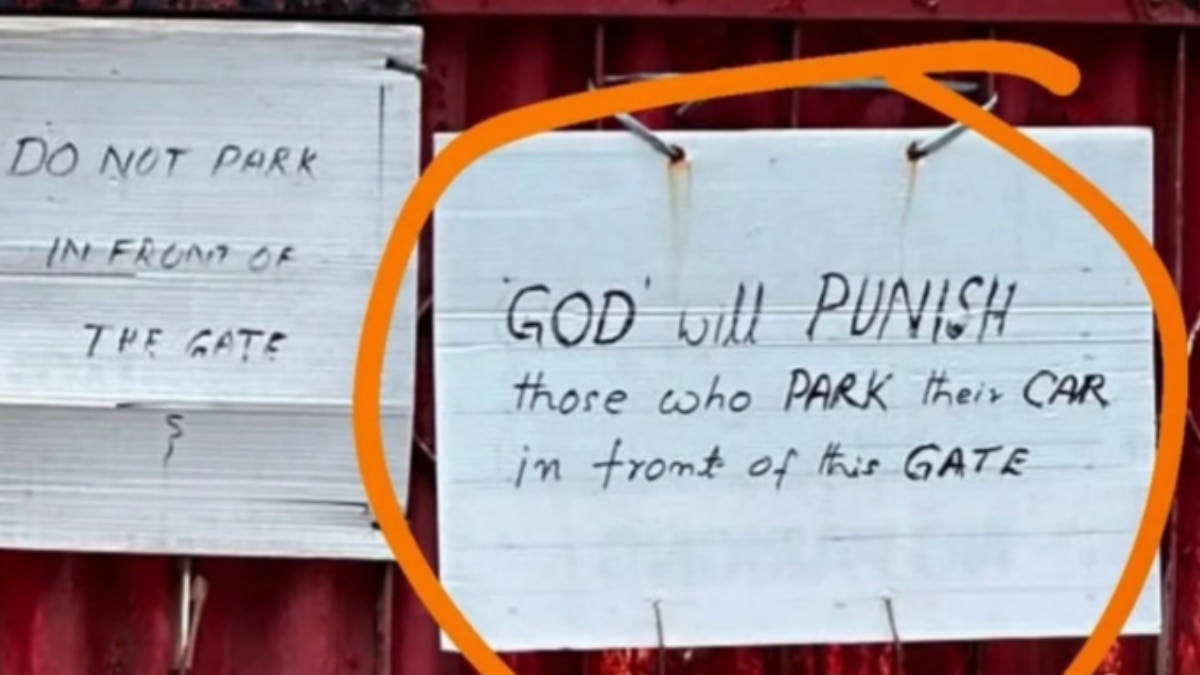 DO NOT PARK
IN FRONT OF
THE GATE
'GOD' will PUNISH
those who PARK their CAR
in front of this GATE